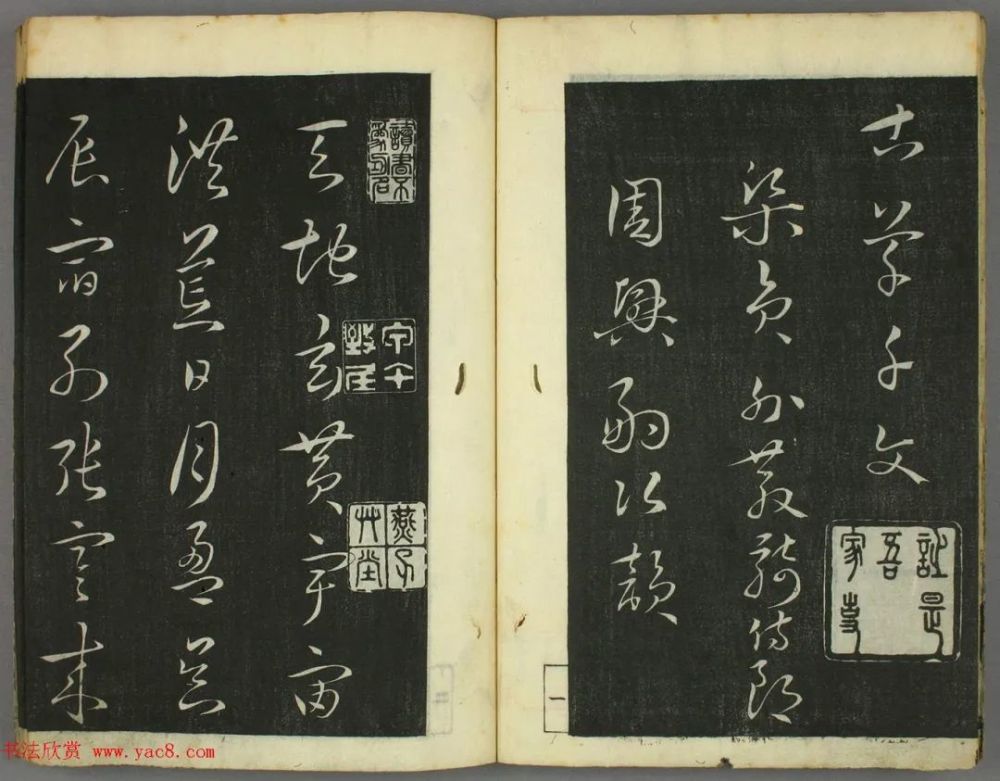 古草千文
梁員外散騎侍郎
周興嗣次韻
詎是吾家事
一
天地玄黃宇宙
洪荒日月盈昃
辰宿列張寒來
燕子艸堂
书法欣赏 www.yac8.com